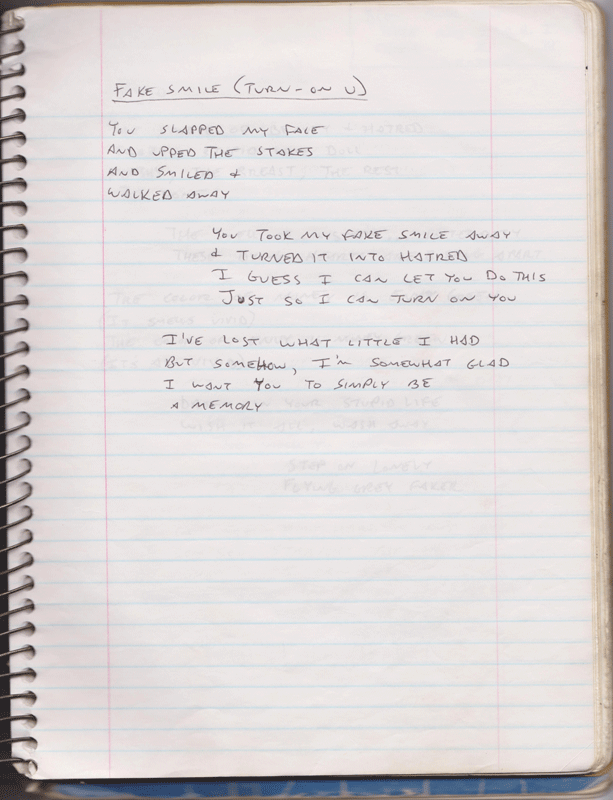 FAKE SMILE (TURN-ON U)
YOU SLAPPED MY FACE
AND UPPED THE STAKES
AND SMILED &
WALKED AWAY
YOU TOOK MY FAKE SMILE AWAY
& TURNED IT INTO HATRED
I GUESS I CAN LET YOU DO THIS
JUST SO I CAN TURN ON YOU
I'VE LOST WHAT LITTLE I HAD
BUT SOMEHOW, I'M SOMEWHAT GLAD
I WANT YOU TO SIMPLY BE
A MEMORY